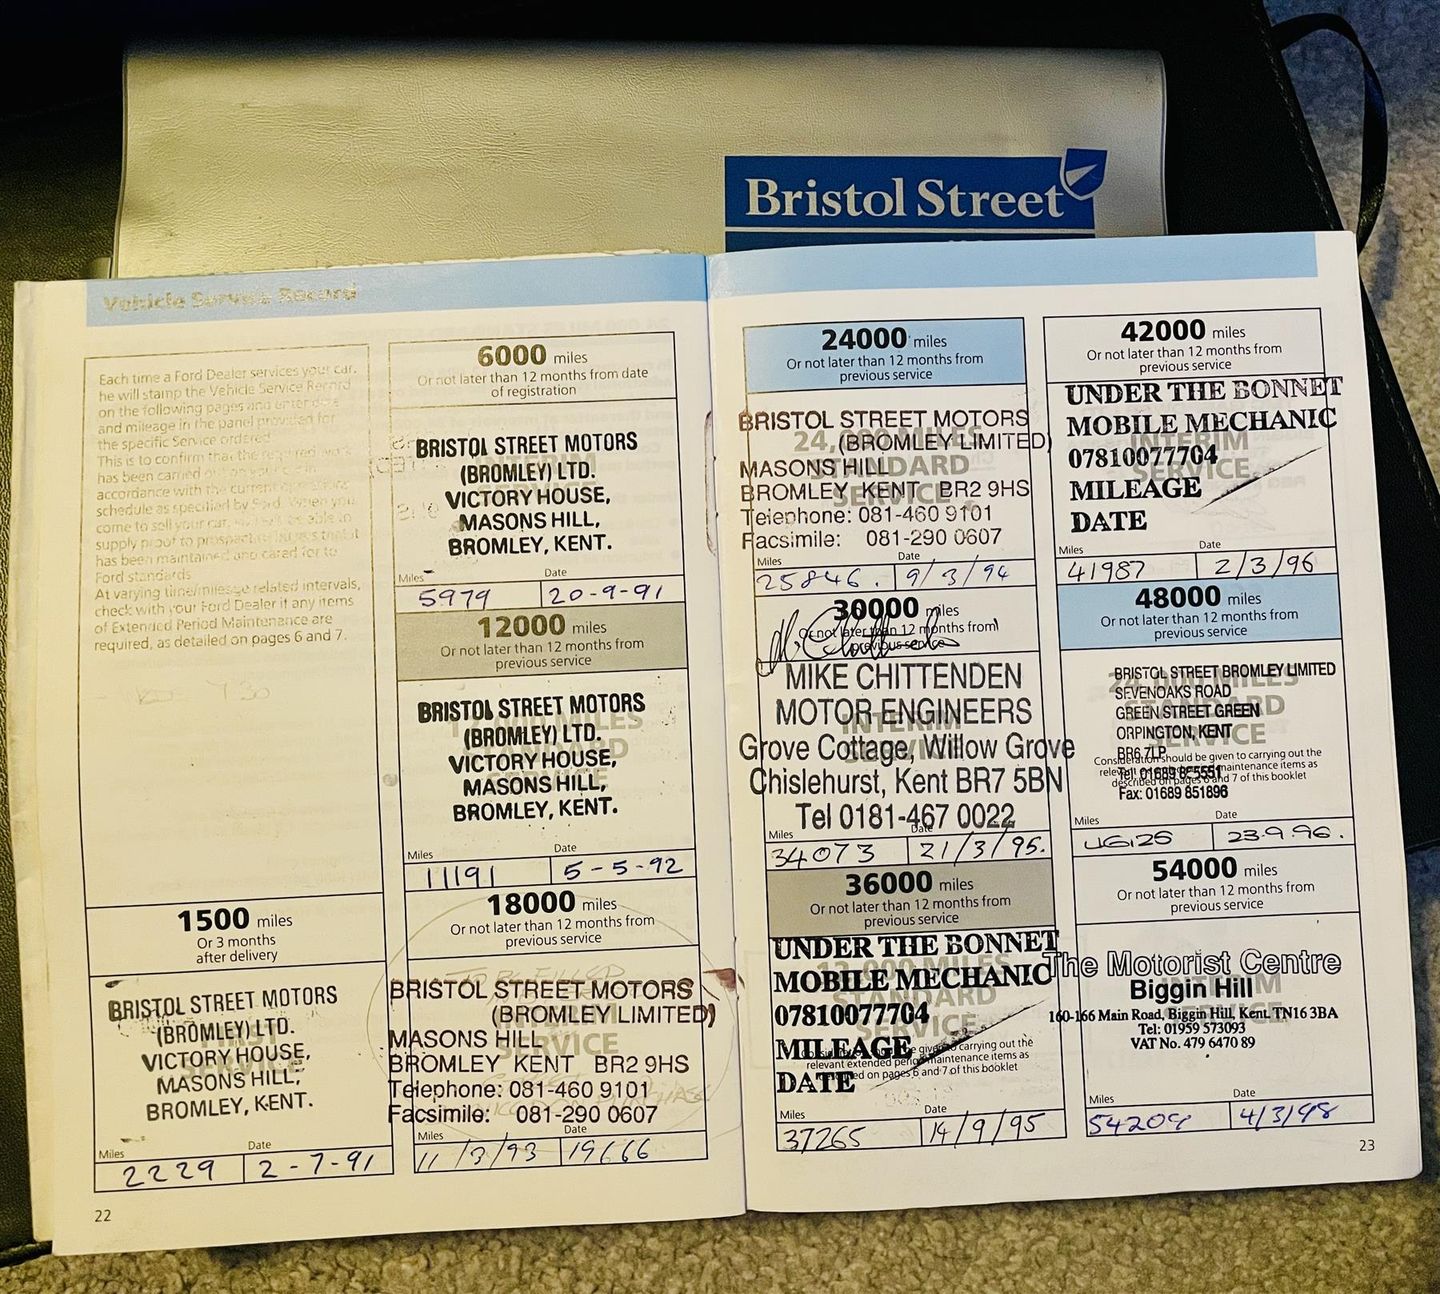 Bristol Street
Vehicle Service Record
Each time a Ford Dealer services your car,
he will stamp the Vehicle Service Record
on the following pages and enter date
and mileage in the panel provided for
the specific Service ordered.
This is to confirm that the required work
has been carried out
accordance with the current
schedule as specified by Ford. When you
come to sell your car,
supply proof to
has been maintained and cared for to
Ford standards.
At varying time/mileage related intervals,
check with your Ford Dealer if any items
of Extended Period Maintenance are
required, as detailed on pages 6 and 7.
7.30
1500 miles
Or 3 months
after delivery
FIRST
SERVICE
BRISTOL STREET MOTORS
(BROMLEY) LTD.
VICTORY HOUSE,
MASONS HILL,
BROMLEY, KENT.
Miles
Date
2229
2-7-91
22
6000 miles
Or not later than 12 months from date
of registration
INTERIM
SERVICE
BRISTOL STREET MOTORS
(BROMLEY) LTD.
VICTORY HOUSE,
MASONS HILL,
BROMLEY, KENT.
Miles
Date
5979
20-9-91
12000 miles
Or not later than 12 months from
previous service
12,000 MILES
STANDARD
SERVICE
BRISTOL STREET MOTORS
(BROMLEY) LTD.
VICTORY HOUSE,
MASONS HILL,
BROMLEY, KENT.
Miles
Date
11191
5-5-92
18000 miles
Or not later than 12 months from
previous service
TO BE FILLED
INTERIM
SERVICE
BRISTOL STREET MOTORS
(BROMLEY LIMITED)
MASONS HILL
BROMLEY KENT BR2 9HS
Telephone: 081-460 9101
Facsimile: 081-290 0607
Miles
Date
11/3/93
19666
24000 miles
Or not later than 12 months from
previous service
24,000 MILES
STANDARD
SERVICE
BRISTOL STREET MOTORS
(BROMLEY LIMITED)
MASONS HILL
BROMLEY KENT BR2 9HS
Telephone: 081-460 9101
Facsimile: 081-290 0607
Miles
Date
25846.
9/3/94
30000 miles
Or not later than 12 months from
previous service
INTERIM
SERVICE
MIKE CHITTENDEN
MOTOR ENGINEERS
Grove Cottage, Willow Grove
Chislehurst, Kent BR7 5BN
Tel 0181-467 0022
Miles
Date
34073
21/3/95.
36000 miles
Or not later than 12 months from
previous service
12,000 MILES
STANDARD
SERVICE
UNDER THE BONNET
MOBILE MECHANIC
07810077704
MILEAGE
DATE
Consideration should be given to carrying out the
relevant extended period maintenance items as
described on pages 6 and 7 of this booklet
Miles
Date
37265
14/9/95
42000 miles
Or not later than 12 months from
previous service
INTERIM
SERVICE
UNDER THE BONNET
MOBILE MECHANIC
07810077704
MILEAGE
DATE
Miles
Date
41987
2/3/96
48000 miles
Or not later than 12 months from
previous service
24,000 MILES
STANDARD
SERVICE
BRISTOL STREET BROMLEY LIMITED
SEVENOAKS ROAD
GREEN STREET GREEN
ORPINGTON, KENT
BR6 7LP
Tel: 01689 825551
Fax: 01689 851896
Consideration should be given to carrying out the
relevant extended period maintenance items as
described on pages 6 and 7 of this booklet
Miles
Date
46125
23.9.96.
54000 miles
Or not later than 12 months from
previous service
INTERIM
SERVICE
The Motorist Centre
Biggin Hill
160-166 Main Road, Biggin Hill, Kent. TN16 3BA
Tel: 01959 573093
VAT No. 479 6470 89
Miles
Date
54209
4/3/98
23